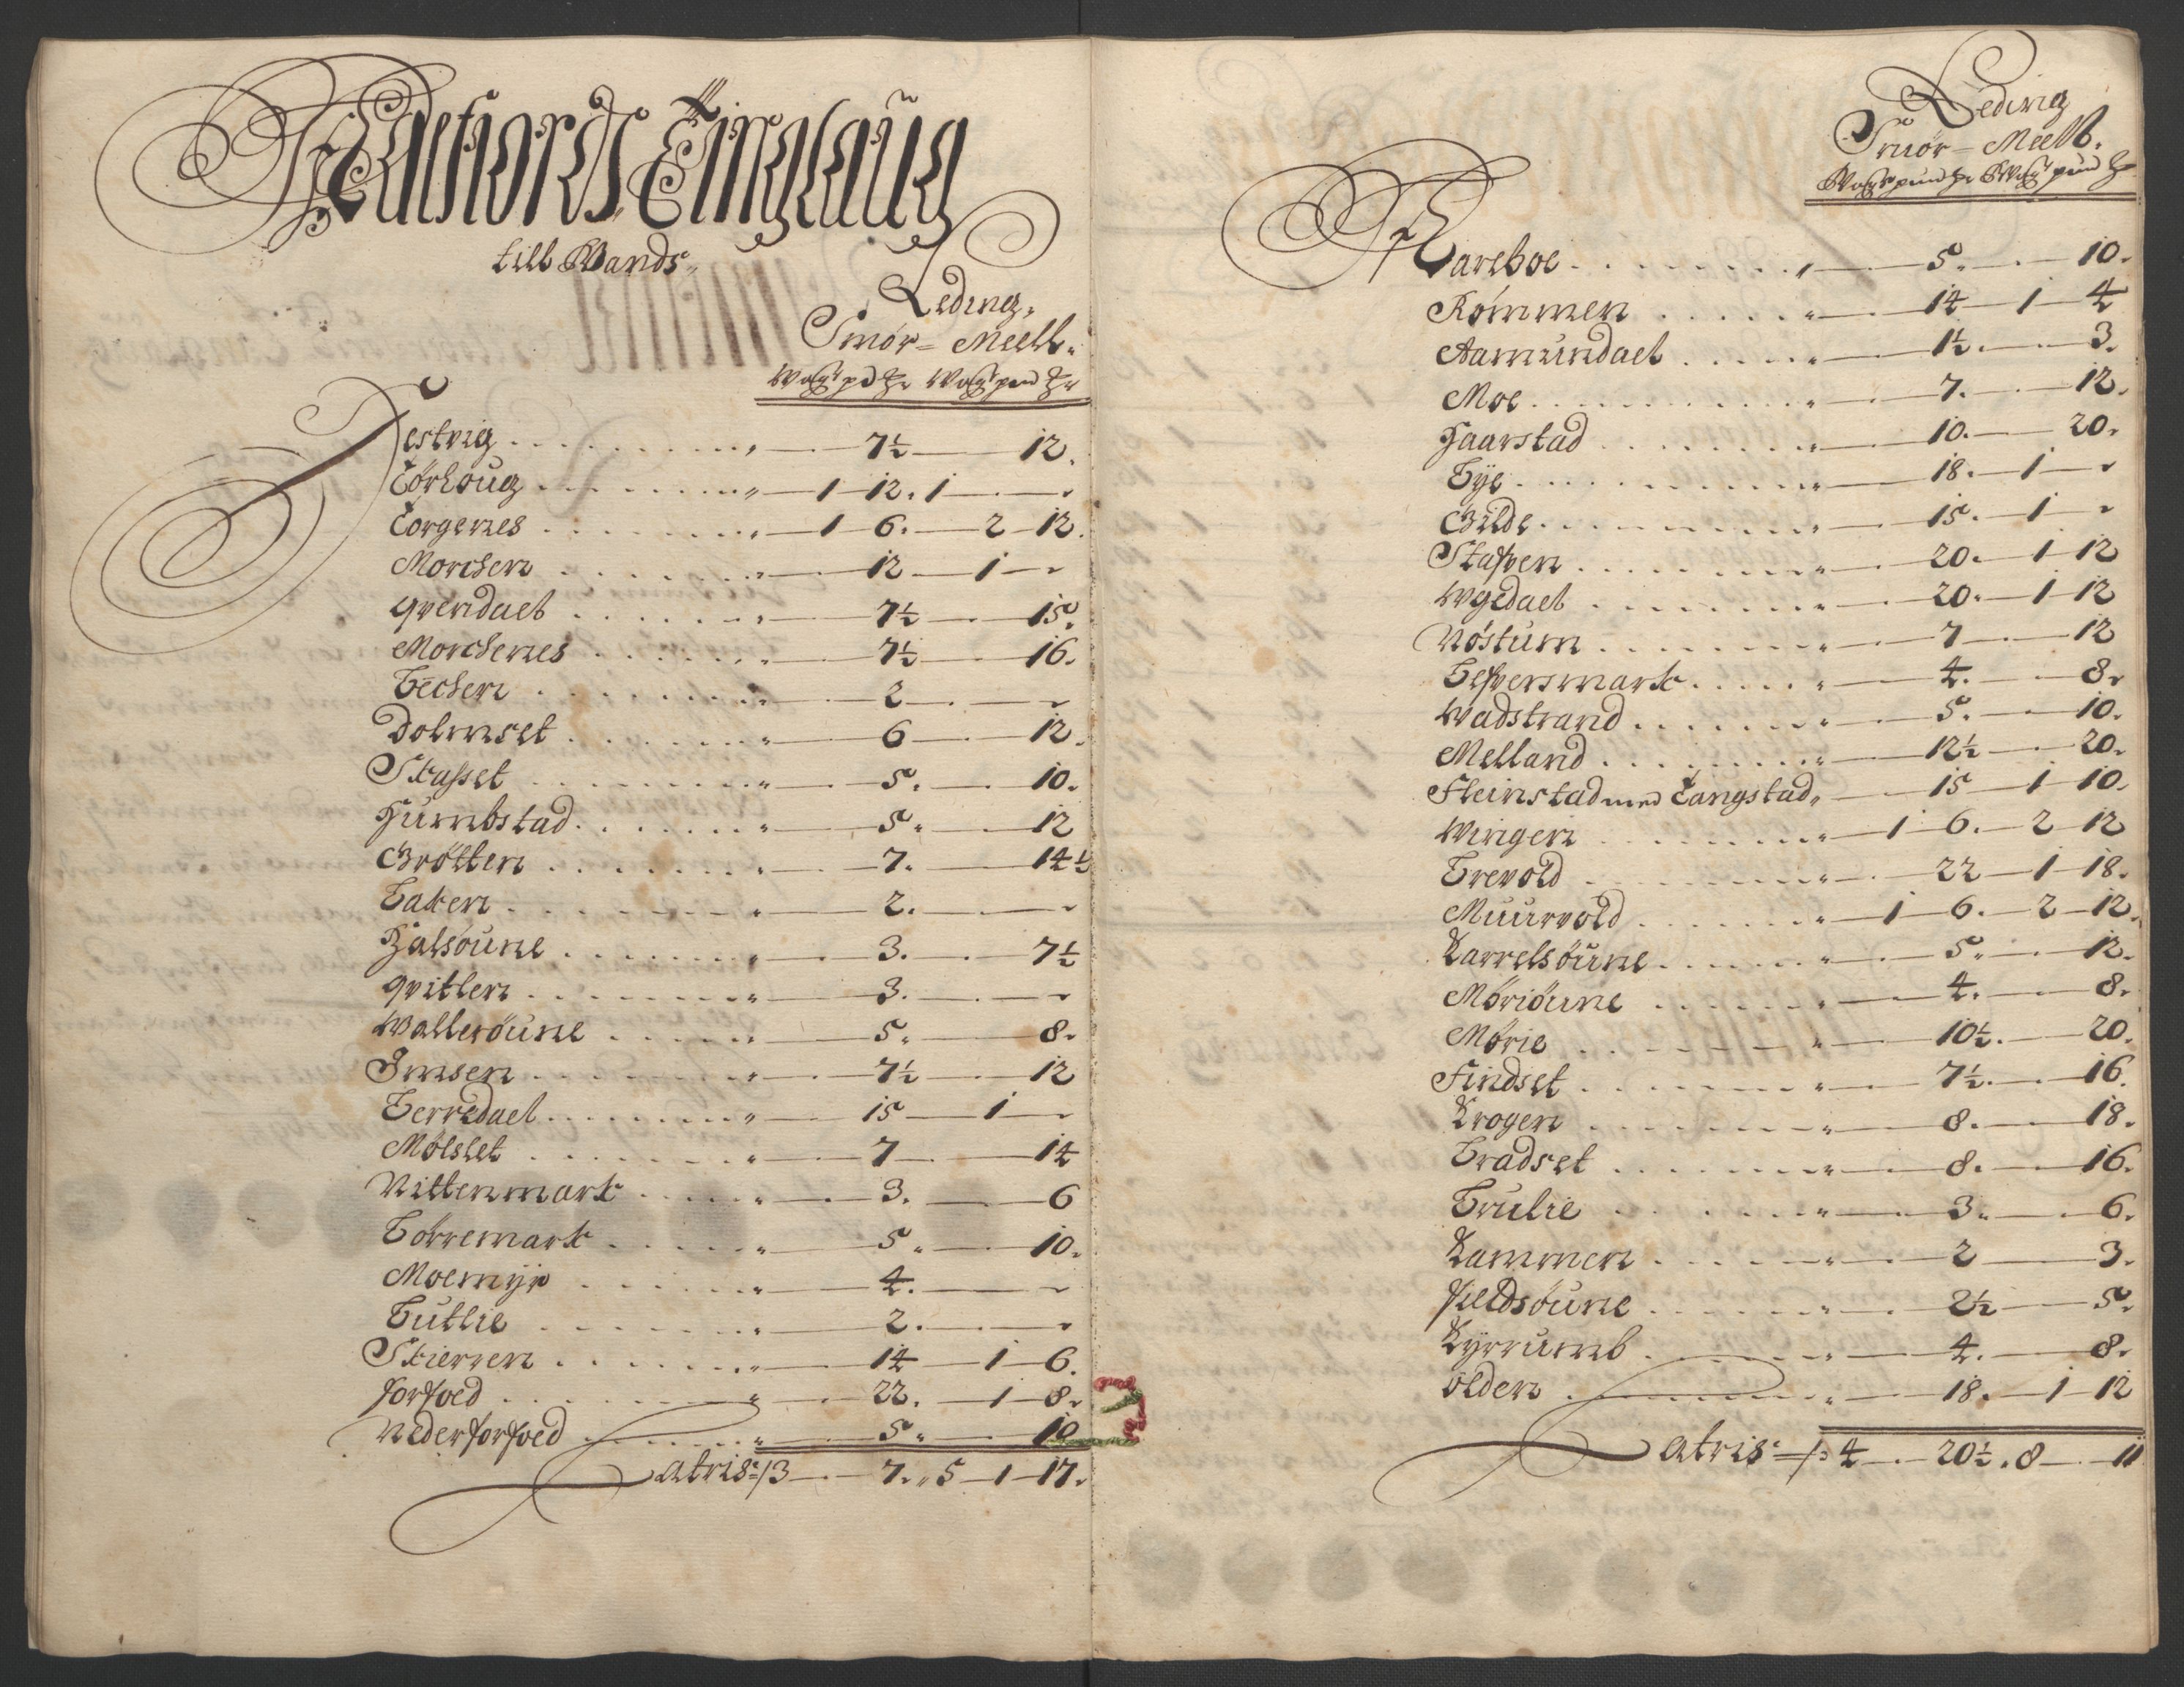 Edefiords Tinglaug
till Wands
Leding,
Smør - Meell.
Wog pd Wog pund
Testvig . . . " — 7½ — 12.
Tørhoug . . . " — 1 — 12. 1 —
Torgenes . . . " — 1 — 6. — 2 — 12.
Morchen . . . " — 12 — 1 —
Qvendael . . . " — 7½ — 15.
Morchenes . . . " — 7½ — 16.
Bechen . . . " — 2 —
Dolmset . . . " — 6 — 12.
Skasset . . . " — 5. — 10.
Humbstad . . . " — 5. — 12
Grøtten . . . " — 7. — 14½
Baken . . . " — 2. —
Halsøune . . . " — 3. — 7½
Qvitlen . . . " — 3. —
Wallerøune . . . " — 5. — 8.
Imsen . . . " — 7½ — 12
Berredael . . . " — 15 — 1 —
Mølslet . . . " — 7 — 14
Nittenmark . . . " — 3. — 6
Børremark . . . " — 5. — 10.
Moemyr . . . " — 4. —
Butlie . . . " — 2. —
Skierven . . . " — 14 — 1 — 6.
forfod . . . " — 22. — 1 — 8.
Nederforfoed . . . " — 5. — 10
Latris 13 — 7. " 5 — 1 — 17.
Leding
Smør - Meell.
Wog pund Wog pund
Vareboe . . . " — 5. — 10.
Rømmen . . . " — 14 — 1 — 4
Aamundael . . . " — 1½ — 3.
Moe . . . " — 7. — 12.
Haarstad . . . " — 10. — 20.
Bye . . . " — 18. — 1 —
Gilde . . . " — 15. — 1 —
Stafven . . . " — 20. — 1 — 12
Wgedael . . . " — 20. — 1 — 12
Nøstum . . . " — 7 — 12
Befversmark . . . " — 4. — 8.
Wadstrand . . . " — 5. — 10.
Melland . . . " — 12½ — 20.
Steinstad med Langstad, — 15 — 1 — 10.
Wingen . . . " — 1 — 6. — 2 — 12
Brevold . . . " — 22 — 1 — 18.
Muurvold . . . " — 1 — 6. — 2 — 12.
Karrelsøune . . . " — 5. — 12.
Møriøune . . . " — 4. — 8.
Mørie . . . " — 10½. — 20.
Findset . . . " — 7½. — 16.
Krogen . . . " — 8. — 18.
Bradset . . . " — 8. — 16.
Brulie . . . " — 3. — 6.
Kammen . . . " — 2 — 3.
fieldsøune . . . " — 2½ — 5.
Kyrrumb . . . " — 4. — 8.
Olden . . . " — 18. — 1 — 12
Latris 4 — 20½. 8 — 11